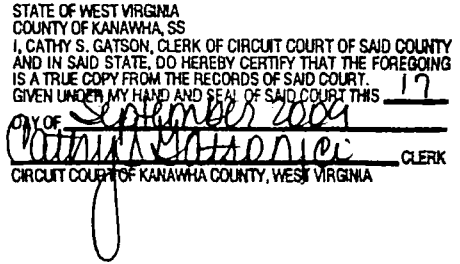 STATE OF WEST VIRGINIA
COUNTY OF KANAWHA, SS
I, CATHY S. GATSON, CLERK OF CIRCUIT COURT OF SAID COUNTY
AND IN SAID STATE, DO HEREBY CERTIFY THAT THE FOREGOING
IS A TRUE COPY FROM THE RECORDS OF SAID COURT.
GIVEN UNDER MY HAND AND SEAL OF SAID COURT THIS 17
DAY OF September 2009
Cathy S Gatson / ci CLERK
CIRCUIT COURT OF KANAWHA COUNTY, WEST VIRGINIA